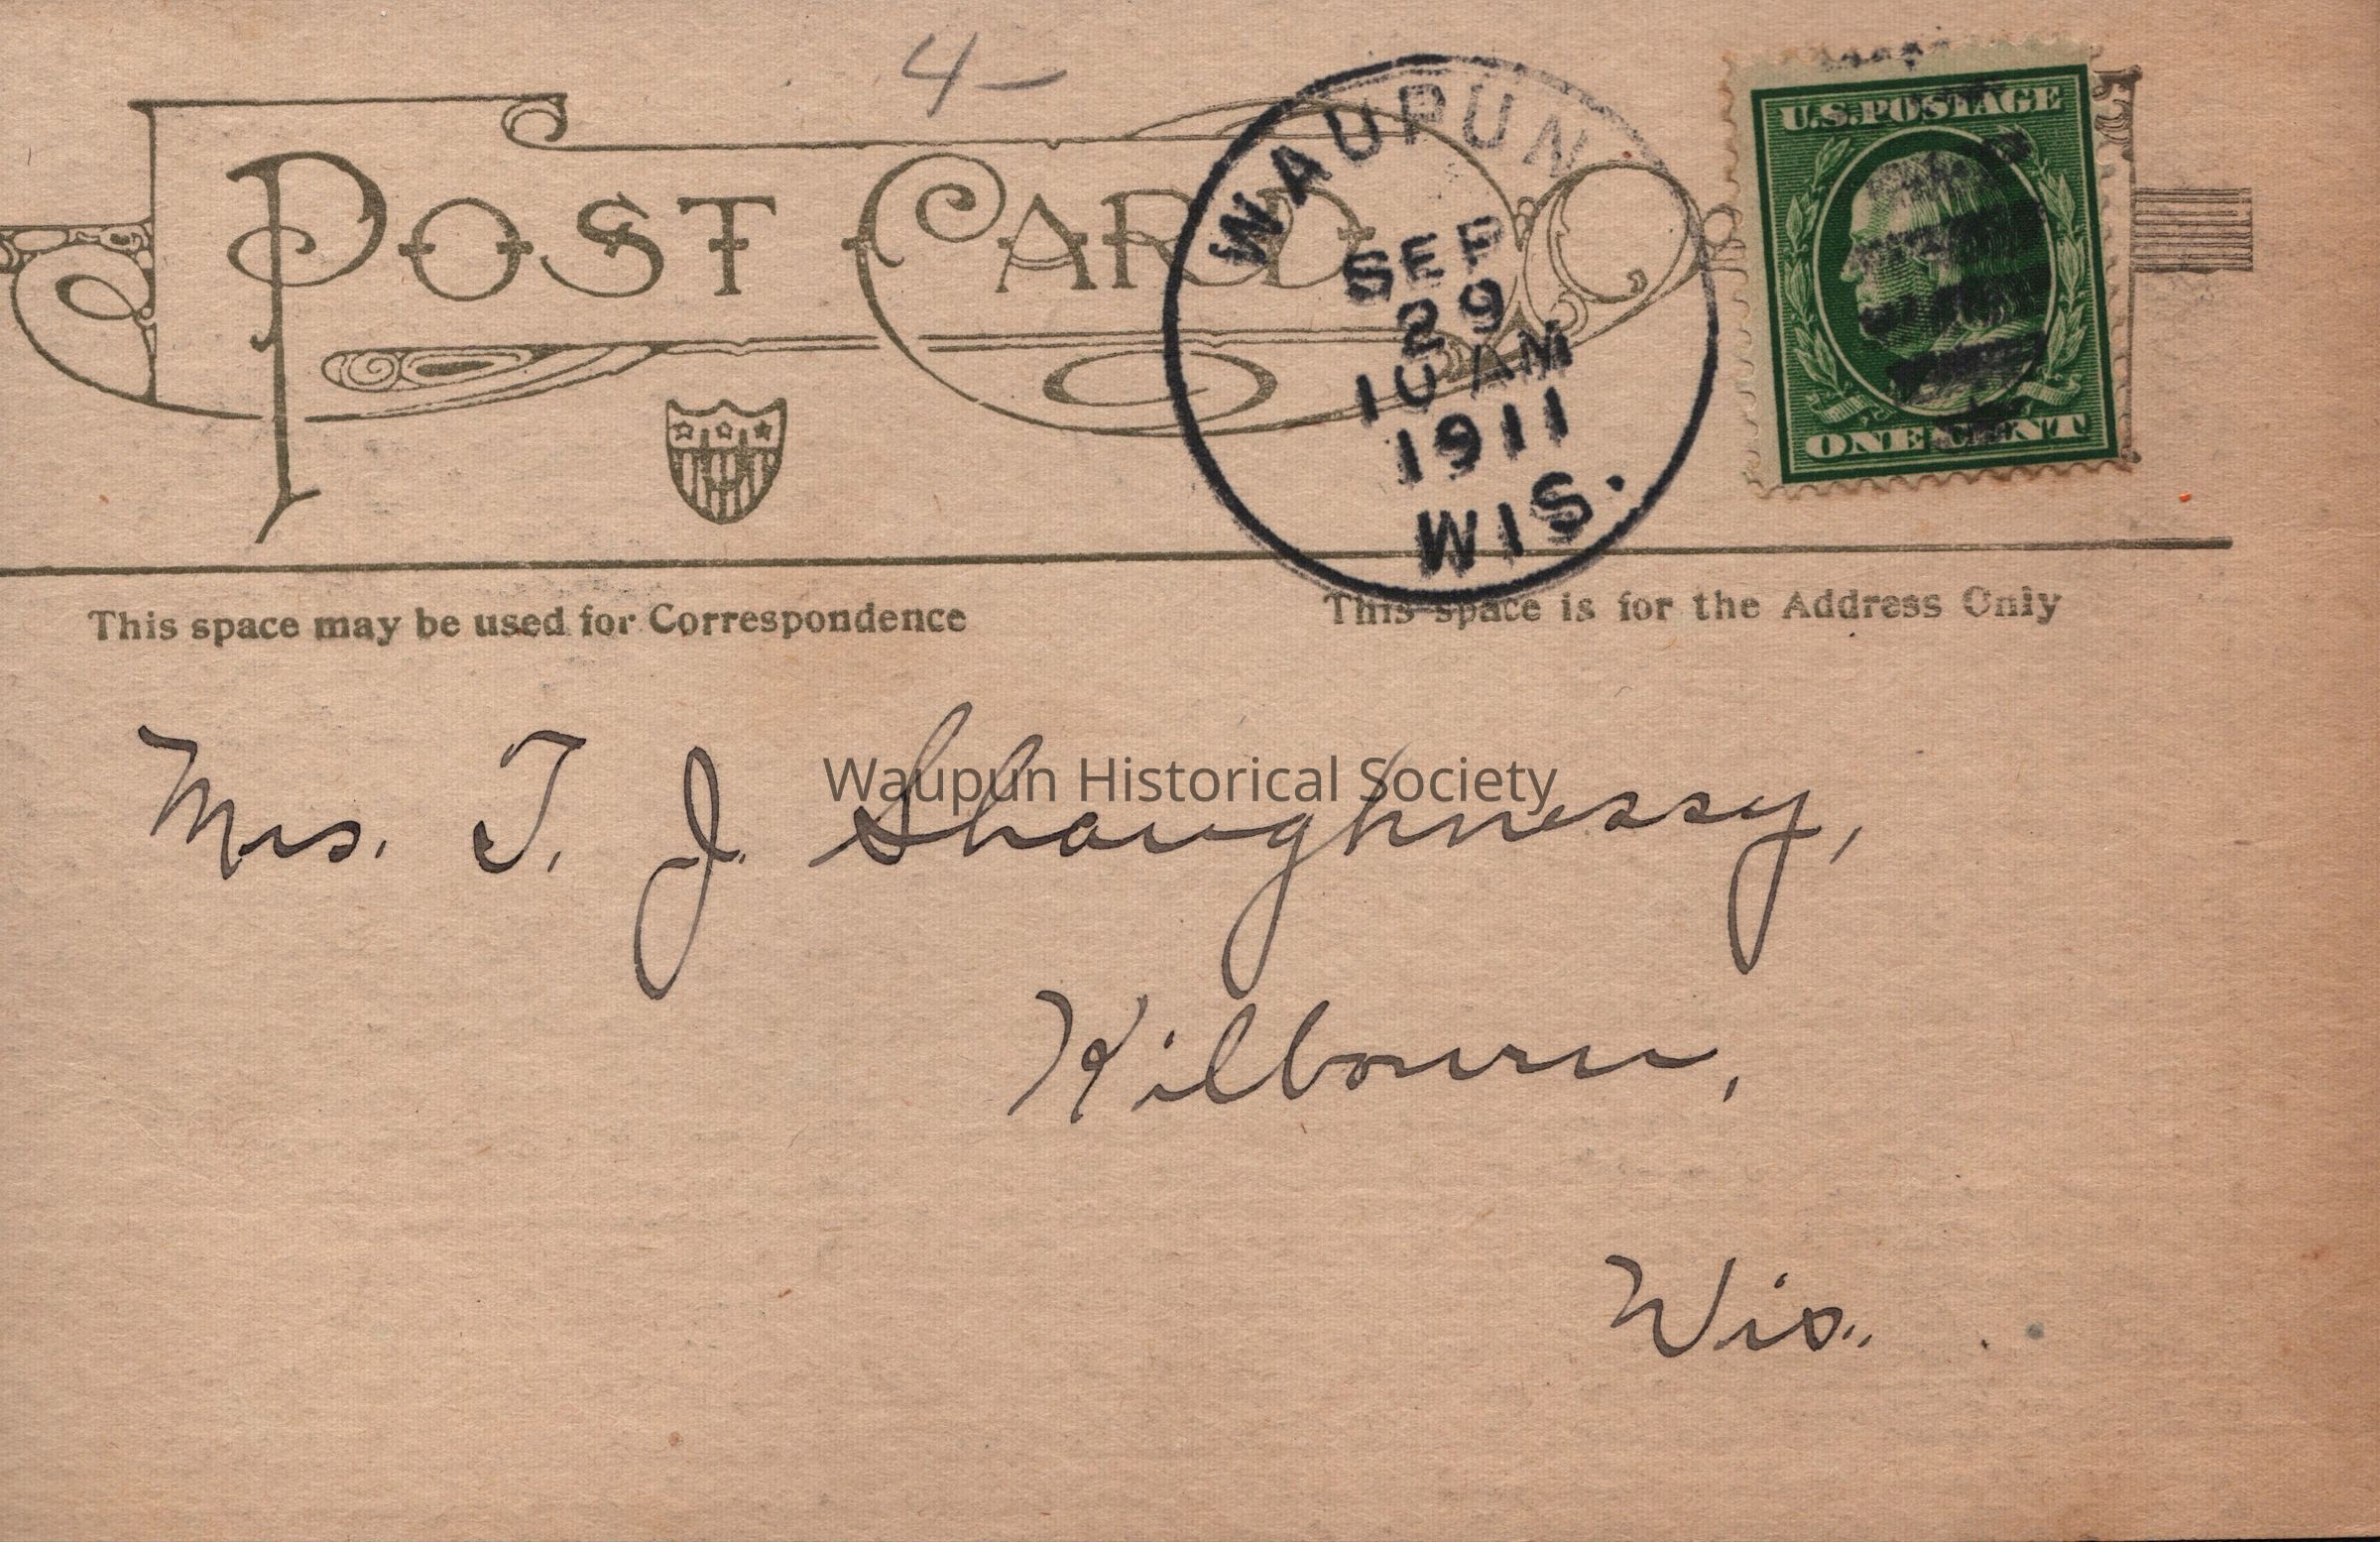 4-
POST CARD
WAUPUN
SEP
29
10 AM
1911
WIS.
U.S. POSTAGE
ONE CENT
This space may be used for Correspondence
This space is for the Address Only
Waupun Historical Society
Mrs. T. J. Shaughnessy,
Kilbourn,
Wis.